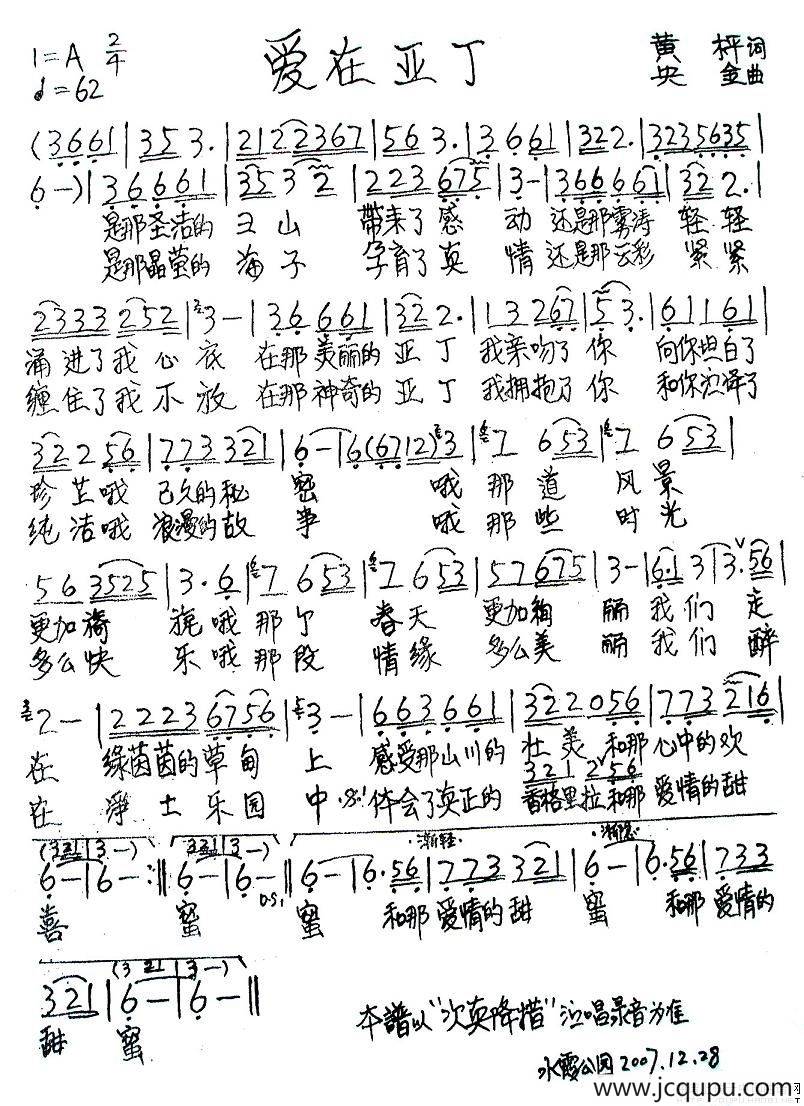 1=A 2/4
♩=62
爱在亚丁
黄枰词
央金曲
(3661|353.|2122367|563.|3661|322.|3235635|
6-)|36661|3532|223675|3-|366661|322.|
是那圣洁的 山 带来了感 动 还是那雾涛 轻轻
是那晶莹的 海子 孕育了真 情 还是那云彩 紧紧
2333252|3-|36661|322.|13267|53.|61161|
涌进了我心底 在那美丽的亚丁 我亲吻了你 向你坦白了
缠住了我不放 在那神奇的亚丁 我拥抱了你 和你演译了
32256|773321|6-|6(6712)3|7653|7653|
珍芷哦 已久的秘 密 哦那道 风景
纯洁哦 浪漫的故 事 哦那些 时光
563525|3.6|7653|7653|57675|3-|6.13|3.56|
更加旖 旎哦那个 春天 更加绚 丽我们 走
多么快 乐哦那段 情缘 多么美 丽我们 醉
2-|22236756|3-|663661|322056|7732161|
在 绿茵茵的草甸 上 感受那山川的 壮美 和那心中的欢
321 2 56
在 净土乐园 中 体会了真正的 香格里拉和那 爱情的甜
(321|3-) (321|3-) 渐轻 渐慢
6-|6-:||6-|6-||6-|6.56|773321|6-|6.56|733
D.S.
喜 蜜 蜜 和那 爱情的甜 蜜 和那 爱情的
(321|3-)
321|6-|6-||
甜 蜜
本谱以“次真降措”演唱录音为准
水霞公园2007.12.28
www.jcqupu.com